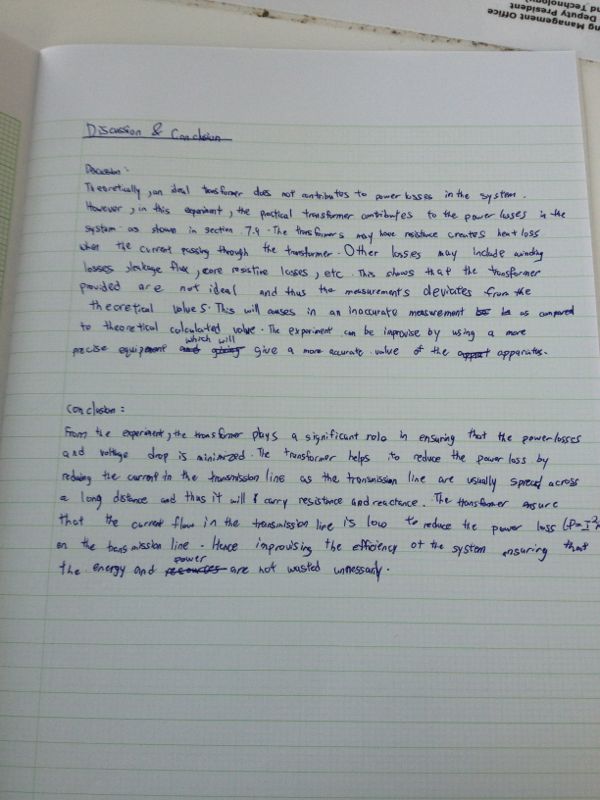 ng Management Office
Deputy President
nd Technology)
Discussion & Conclusion
Discussion:
Theoretically, an ideal transformer does not contributes to power losses in the system.
However, in this experiment, the practical transformer contributes to the power losses in the
system as shown in section 7.4. The transformers may have resistance creates heat loss
when the current passing through the transformer. Other losses may include winding
losses, leakage flux, core resistive losses, etc. This shows that the transformer
provided are not ideal and thus the measurements deviates from the
theoretical values. This will causes in an inaccurate measurement as compared
to theoretical calculated value. The experiment can be improvise by using a more
precise equipment and giving which will give a more accurate value of the apparatus.
Conclusion:
From the experiment, the transformer plays a significant role in ensuring that the power losses
and voltage drop is minimized. The transformer helps to reduce the power loss by
reducing the current in the transmission line as the transmission line are usually spread across
a long distance and thus it will carry resistance and reactance. The transformer ensure
that the current flow in the transmission line is low to reduce the power loss (P=I²R
on the transmission line. Hence improvising the efficiency of the system ensuring that
the energy and resources power are not wasted unnessarily.